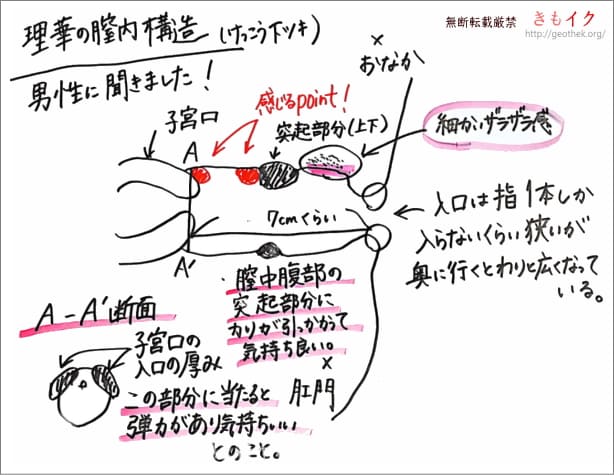 理華の膣内構造(けっこう下ツキ)
無断転載厳禁 きもイク
http://geothek.org/
男性に聞きました!
×
おなか
感じるpoint!
子宮口
突起部分(上下)
細かいザラザラ感
A
7cmくらい
入口は指1本しか
入らないくらい狭いが
奥に行くとわりと広くなって
いる。
A'
膣中腹部の
突起部分に
カリが引っかかって
気持ち良い。
A-A'断面
子宮口の
入口の厚み
×
肛門
この部分に当たると
弾力があり気持ちいい
とのこと。